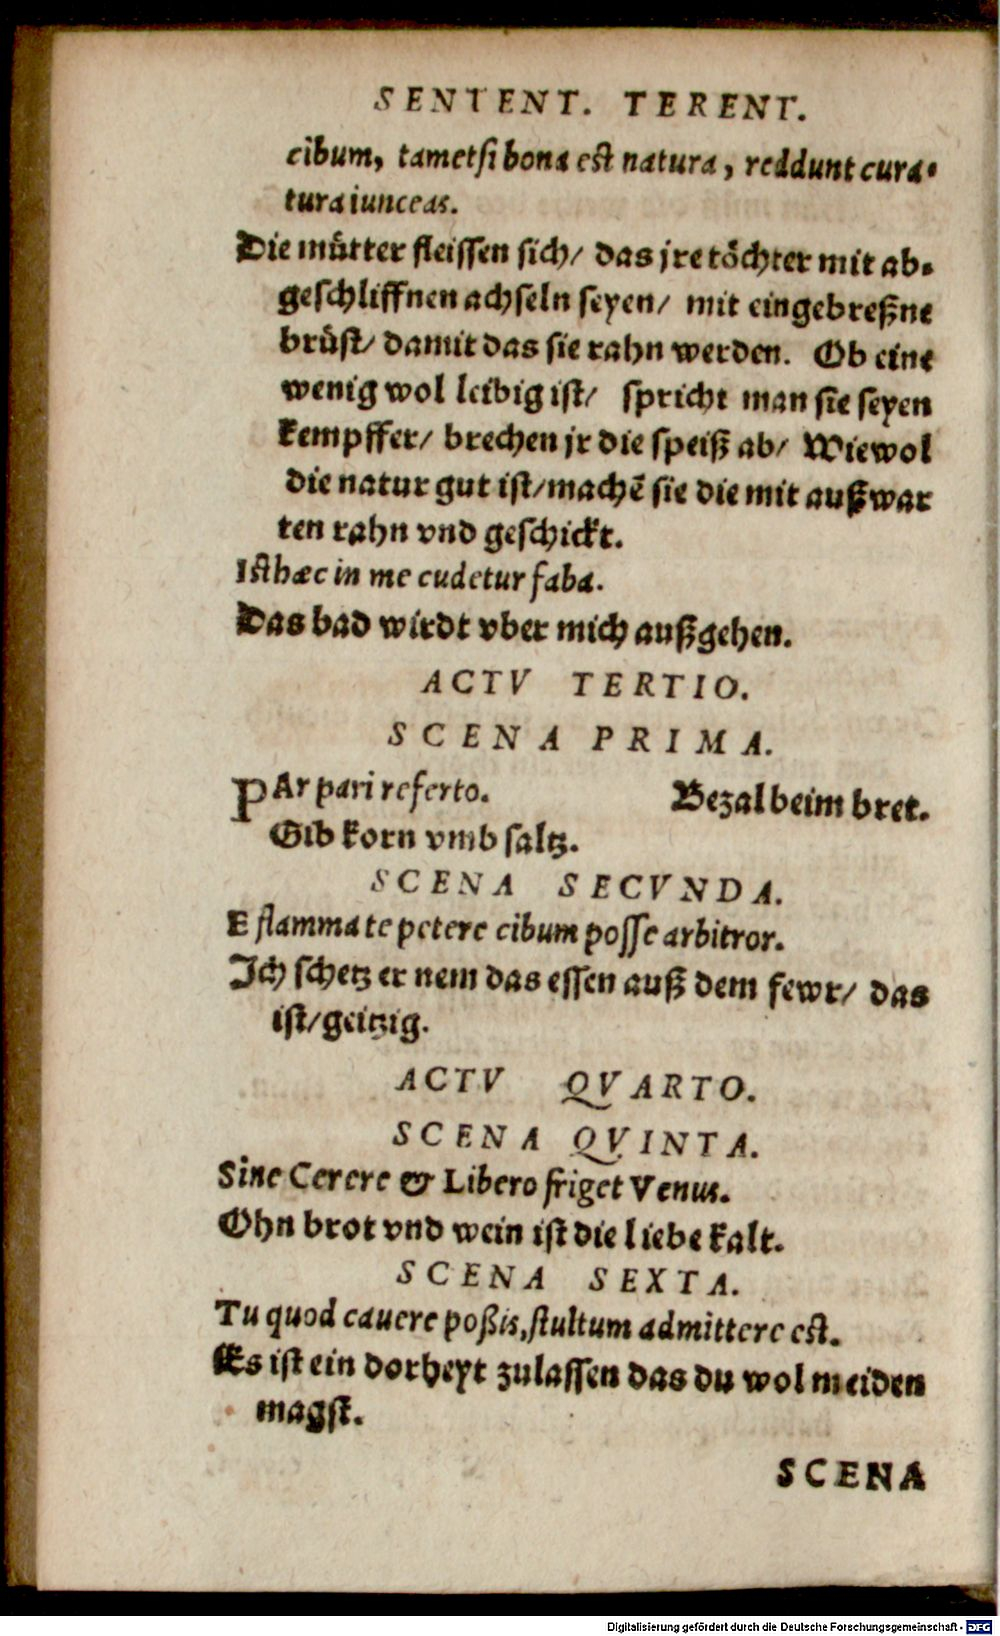 SENTENT. TERENT.
cibum, tametsi bona est natura, reddunt cura-
tura iunceas.
Die můtter fleissen sich/ das jre tőchter mit ab-
geschliffnen achseln seyen/ mit eingebreßne
brüst/ damit das sie rahn werden. Ob eine
wenig wol leibig ist/ spricht man sie seyen
kempffer/ brechen jr die speiß ab/ Wiewol
die natur gut ist/machē sie die mit außwar
ten rahn vnd geschickt.
Isthæc in me cudetur faba.
Das bad wirdt vber mich außgehen.
ACTV TERTIO.
SCENA PRIMA.
PAr pari referto. Bezal beim bret.
Gib korn vmb saltz.
SCENA SECVNDA.
E flamma te petere cibum posse arbitror.
Ich schetz er nem das essen auß dem fewr/ das
ist/geitzig.
ACTV QVARTO.
SCENA QVINTA.
Sine Cerere & Libero friget Venus.
Ohn brot vnd wein ist die liebe kalt.
SCENA SEXTA.
Tu quod cauere poßis, stultum admittere est.
Es ist ein dorheyt zulassen das du wol meiden
magst.
SCENA
Digitalisierung gefördert durch die Deutsche Forschungsgemeinschaft - DFG